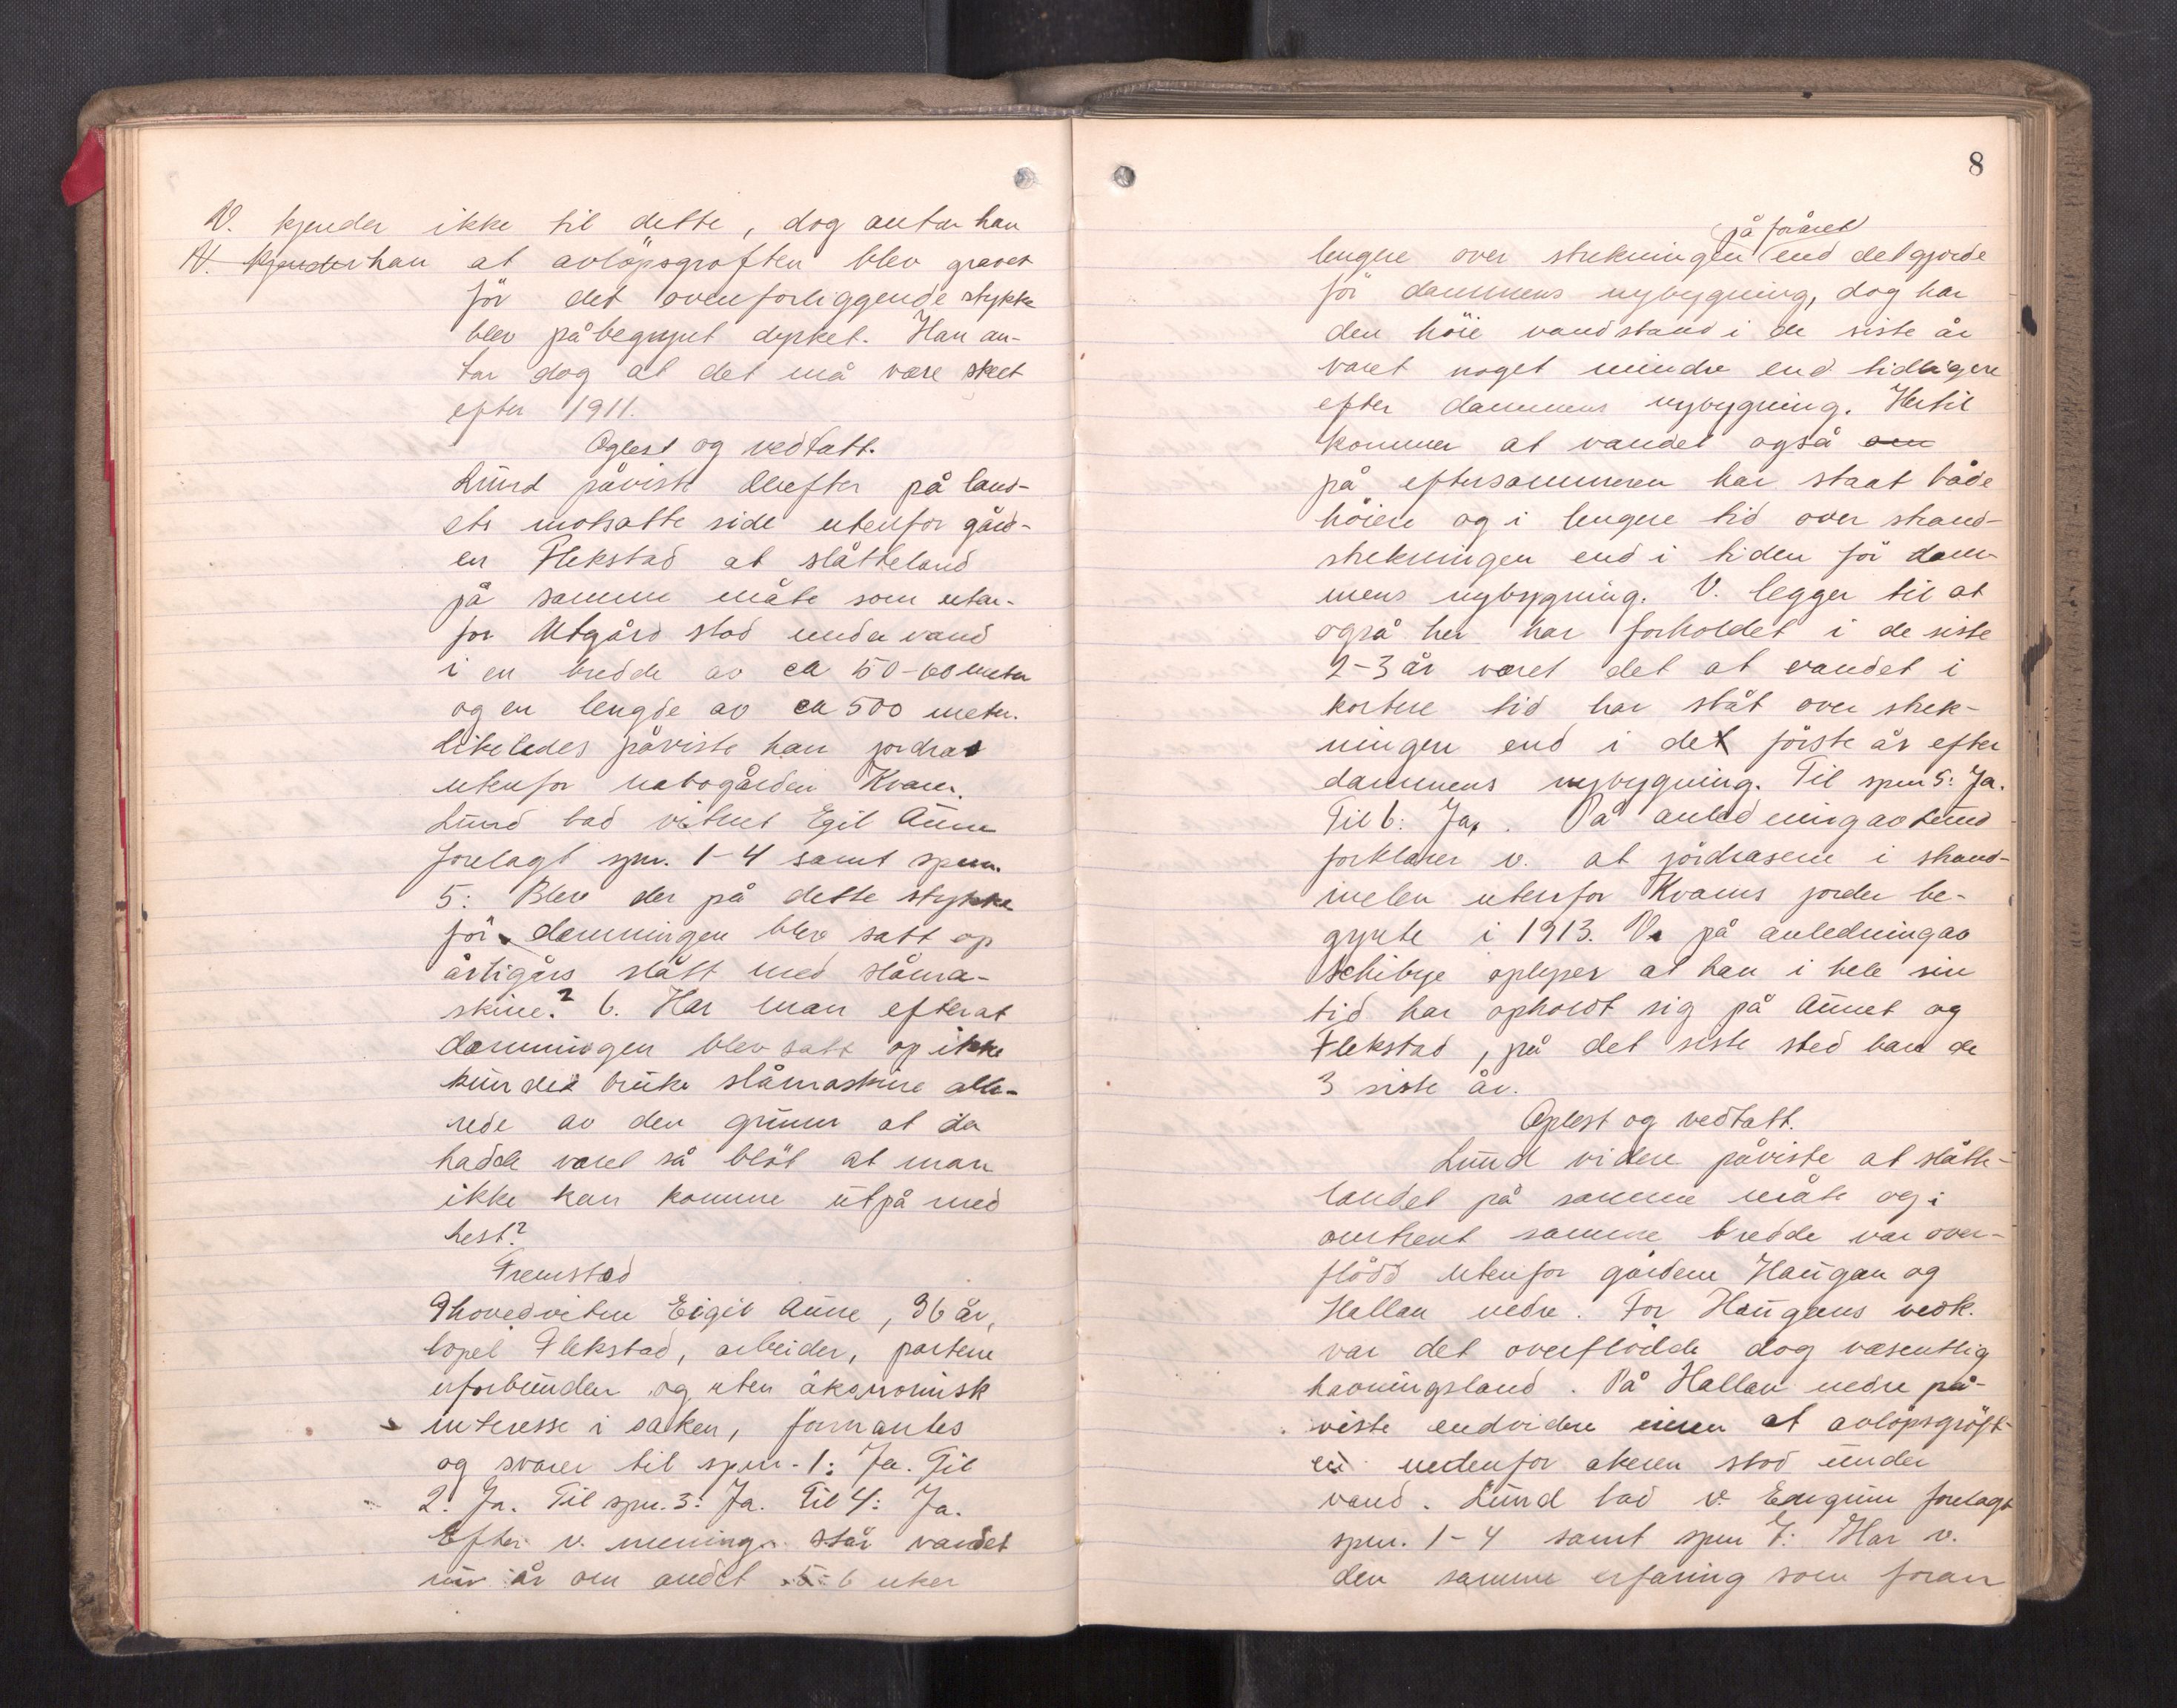 V. kjender ikke til dette, dog antar han
N. kjender han at avløpsgrøften blev gravet
før det ovenforliggende stykke
blev påbegynt dyrket. Han an-
tar dog at det må være skeet
efter 1911.
Oplest og vedtatt.
Lund påviste derefter på land-
ets motsatte side utenfor gård-
en Flekstad at slåtteland
på samme måte som utan-
for Utgård stod under vand
i en bredde av ca 50-60 meter
og en lengde av ca 500 meter.
likeledes påviste han jordras
utenfor nabogården Kvam.
Lund bad vitnet Egil Aune
forelagt spm. 1-4 samt spm.
5: Blev der på dette stykke
før demningen blev satt op
årtigårs slått med slåma-
skine? 6. Har man efterat
demningen blev satt op ikke
kundet bruke slåmaskine alle-
rede av den grunn at da
hadde været så bløt at man
ikke kan komme utpå med
hest?
Fremstod
9 hovedvitne Eigil Aune, 36 år,
bopel Flekstad, arbeider, partene
uforbunden og uten økonomisk
interesse i saken, formantes
og svarer til spm. 1: Ja. Til
2. Ja. Til spm. 3: Ja. Til 4: Ja.
Efter v. mening står vandet
nu år om andet 5-6 uker
8
på foråret
lengere over strekningen end det gjorde
før dammens nybygning, dog har
den høie vandstand i de siste år
været noget mindre end tidligere
efter dammens nybygning. Hertil
kommer at vandet også om
på eftersommeren har staat både
høiere og i lengere tid over strand-
strekningen end i tiden før dam-
mens nybygning. V. legger til at
også her har forholdet i de siste
2-3 år været det at vandet i
kortere tid har ståt over strek-
ningen end i det første år efter
dammens nybygning. Til spm 5: Ja.
Til 6: Ja. På anledning av Lund
forklarer v. at jordrasene i strand-
melen utenfor Kvams jorder be-
gynte i 1913. V. på anledning av
Schibye oplyser at han i hele sin
tid har opholdt sig på Aunet og
Flekstad, på det siste sted bare de
3 siste år.
Oplest og vedtatt.
Lund videre påviste at slåtte-
landet på samme måte og i
omtrent samme bredde var over-
flødd utenfor gårdene Haugan og
Hallan nedre. For Haugans vedk.
var det overflødde dog væsentlig
havningsland. På Hallan nedre på-
viste endvidere at avløpsgrøft-
en nedenfor akeren stod under
vand. Lund bad v. forelagt
spm. 1-4 samt spm 7: Har v.
den samme erfaring som foran